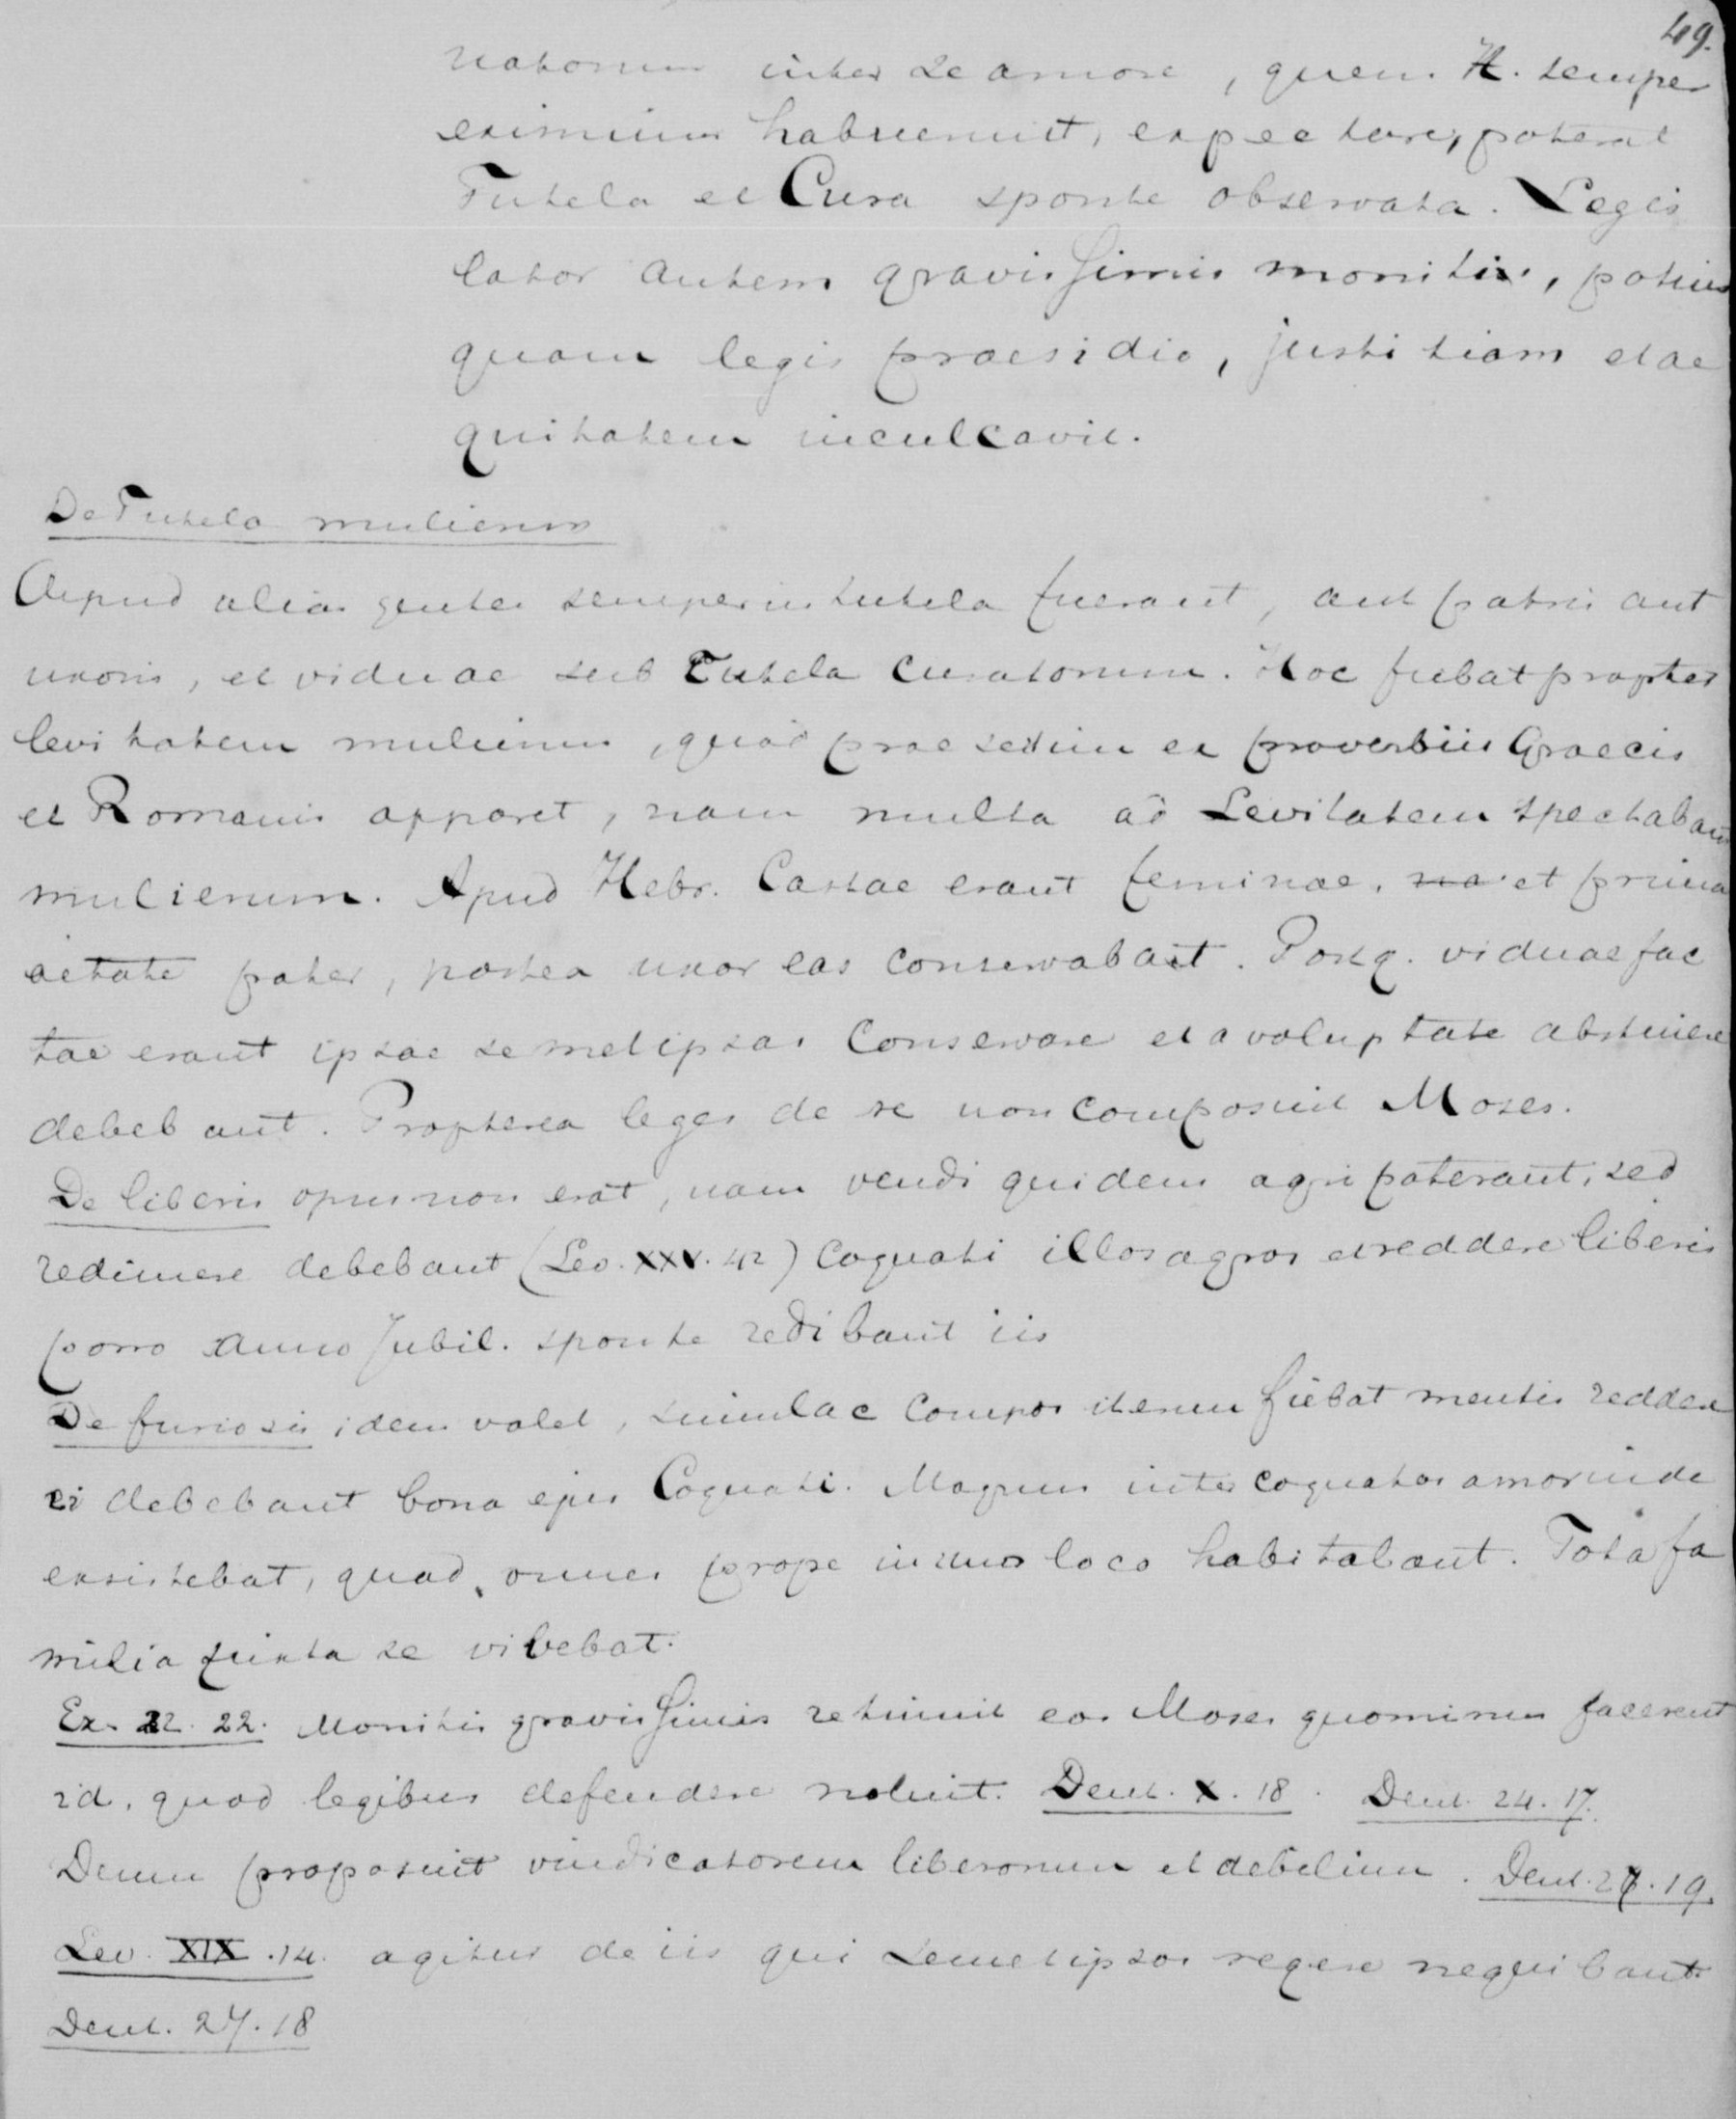 49.
natorum inter se amore, quem H. semper
eximium habuerunt, expectari, poterat
Tutela et Cura sponte observata. Legis
lator autem gravissimis monitis, potius
quam legis praesidio, justitiam et ae
quitatem inculcavit.
De Tutela mulierum
Apud alias gentes semper in tutela fuerant, aut patris aut
uxoris, et viduae sub Tutela Curatorum. Hoc fiebat propter
levitatem mulierum, quod praesertim ex proverbiis Graecis
et Romanis apparet, nam multa ad Levitatem spectabant
mulierum. Apud Hebr. Castae erant feminae, na et prima
aetate pater, postea uxor eas conservabat. Postq. viduae fac
tae erant ipsae semetipsas Conservare et a voluptate abstinere
debebant. Propterea leges de re non composuit Moses.
De liberis opus non erat, nam vendi quidem agri poterant, sed
redimere debebant (Lev. XXV. 42) Cognati illos agros et reddere liberis
porro anno Jubil. sponte redibant iis
De furiosis idem valet, simulac Compos iterum fiebat mentis reddere
ei debebant bona ejus Cognati. Magnus inter cognatos amor inde
existebat, quod omnes prope in uno loco habitabant. Tota fa
milia juxta se vivebat.
Ex. 22. 22. Monitis gravissimis retinuit eos Moses quominus facerent
id, quod legibus defendere noluit. Deut. X. 18. Deut. 24. 17.
Deum proposuit vindicatorem liberorum et debilium. Deut. 27. 19.
Lev. XIX. 14. agitur de iis qui semetipsos regere nequibant
Deut. 27. 18